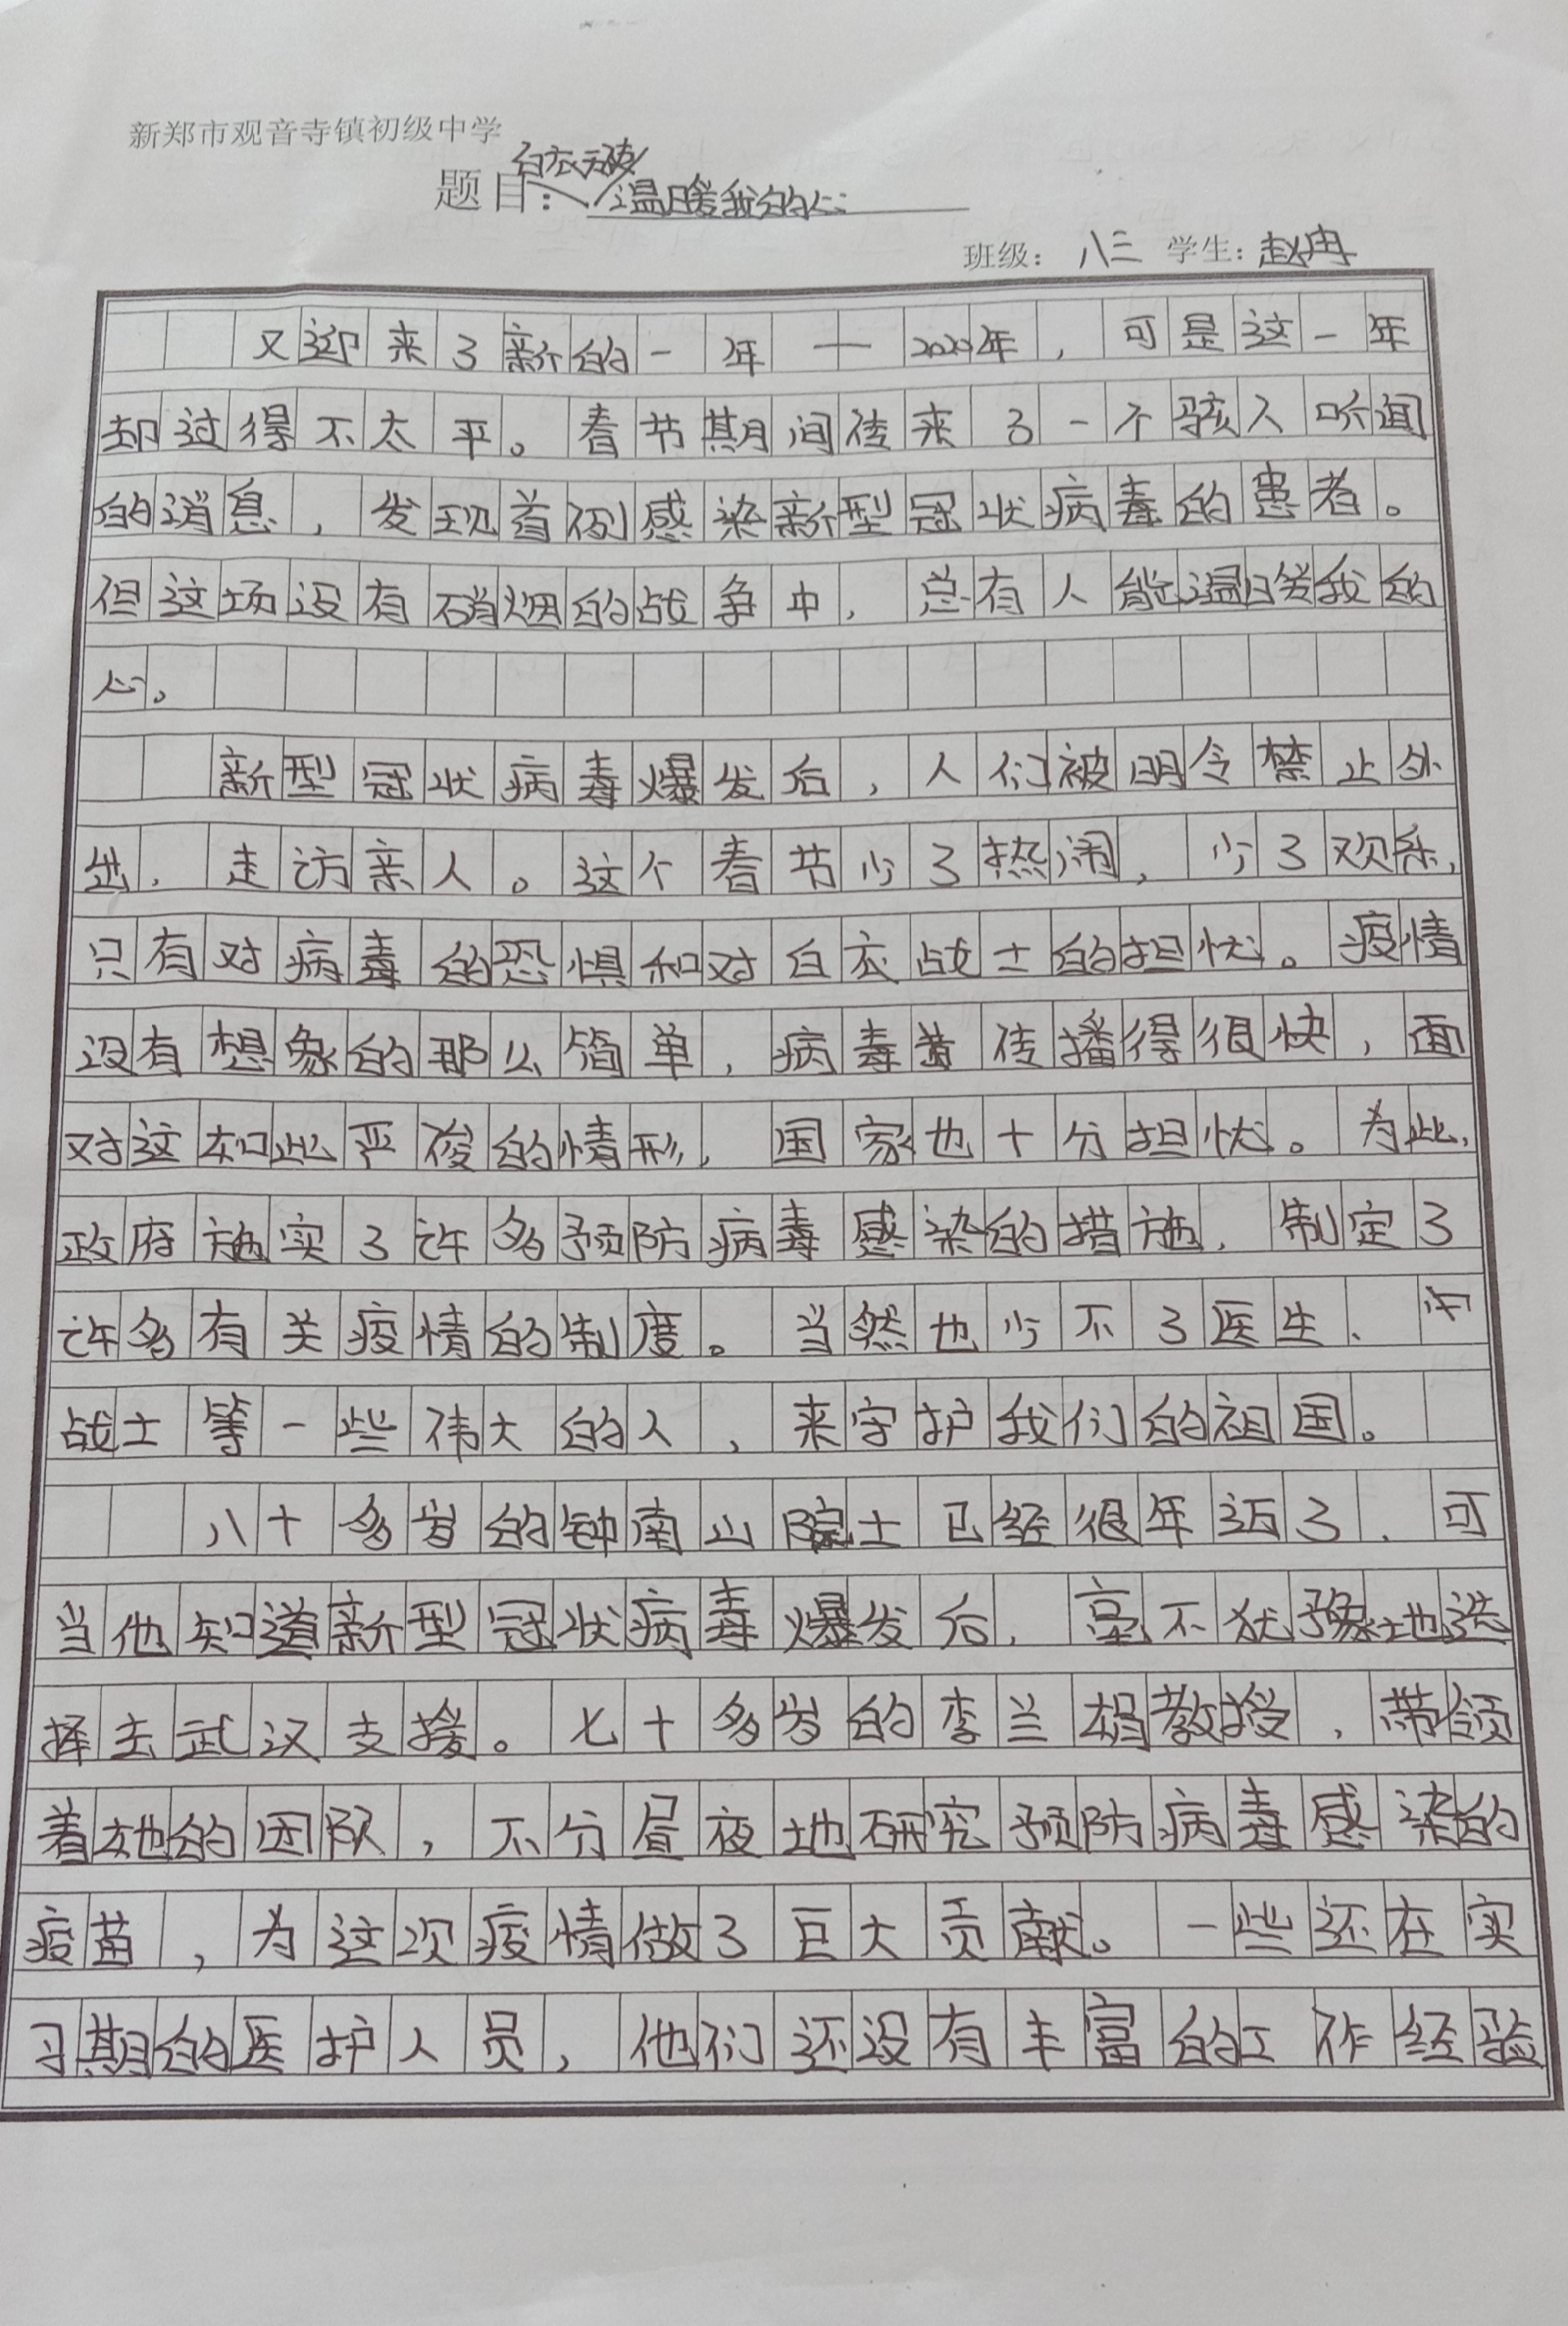 新郑市观音寺镇初级中学
白衣天使
题目：温暖我的心
班级：八三 学生：赵冉
又迎来了新的一年——2020年，可是这一年
却过得不太平。春节期间传来了一个骇人听闻
的消息，发现首例感染新型冠状病毒的患者。
但这场没有硝烟的战争中，总有人能温暖我的
心。
新型冠状病毒爆发后，人们被明令禁止外
出，走访亲人。这个春节少了热闹，少了欢乐，
只有对病毒的恐惧和对白衣战士的担忧。疫情
没有想象的那么简单，病毒传播得很快，面
对这如此严俊的情形，国家也十分担忧。为此，
政府施实了许多预防病毒感染的措施，制定了
许多有关疫情的制度。当然也少不了医生、
战士等一些伟大的人，来守护我们的祖国。
八十多岁的钟南山院士已经很年迈了，可
当他知道新型冠状病毒爆发后，毫不犹豫地选
择去武汉支援。七十多岁的李兰娟教授，带领
着她的团队，不分昼夜地研究预防病毒感染的
疫苗，为这次疫情做了巨大贡献。一些还在实
习期的医护人员，他们还没有丰富的工作经验